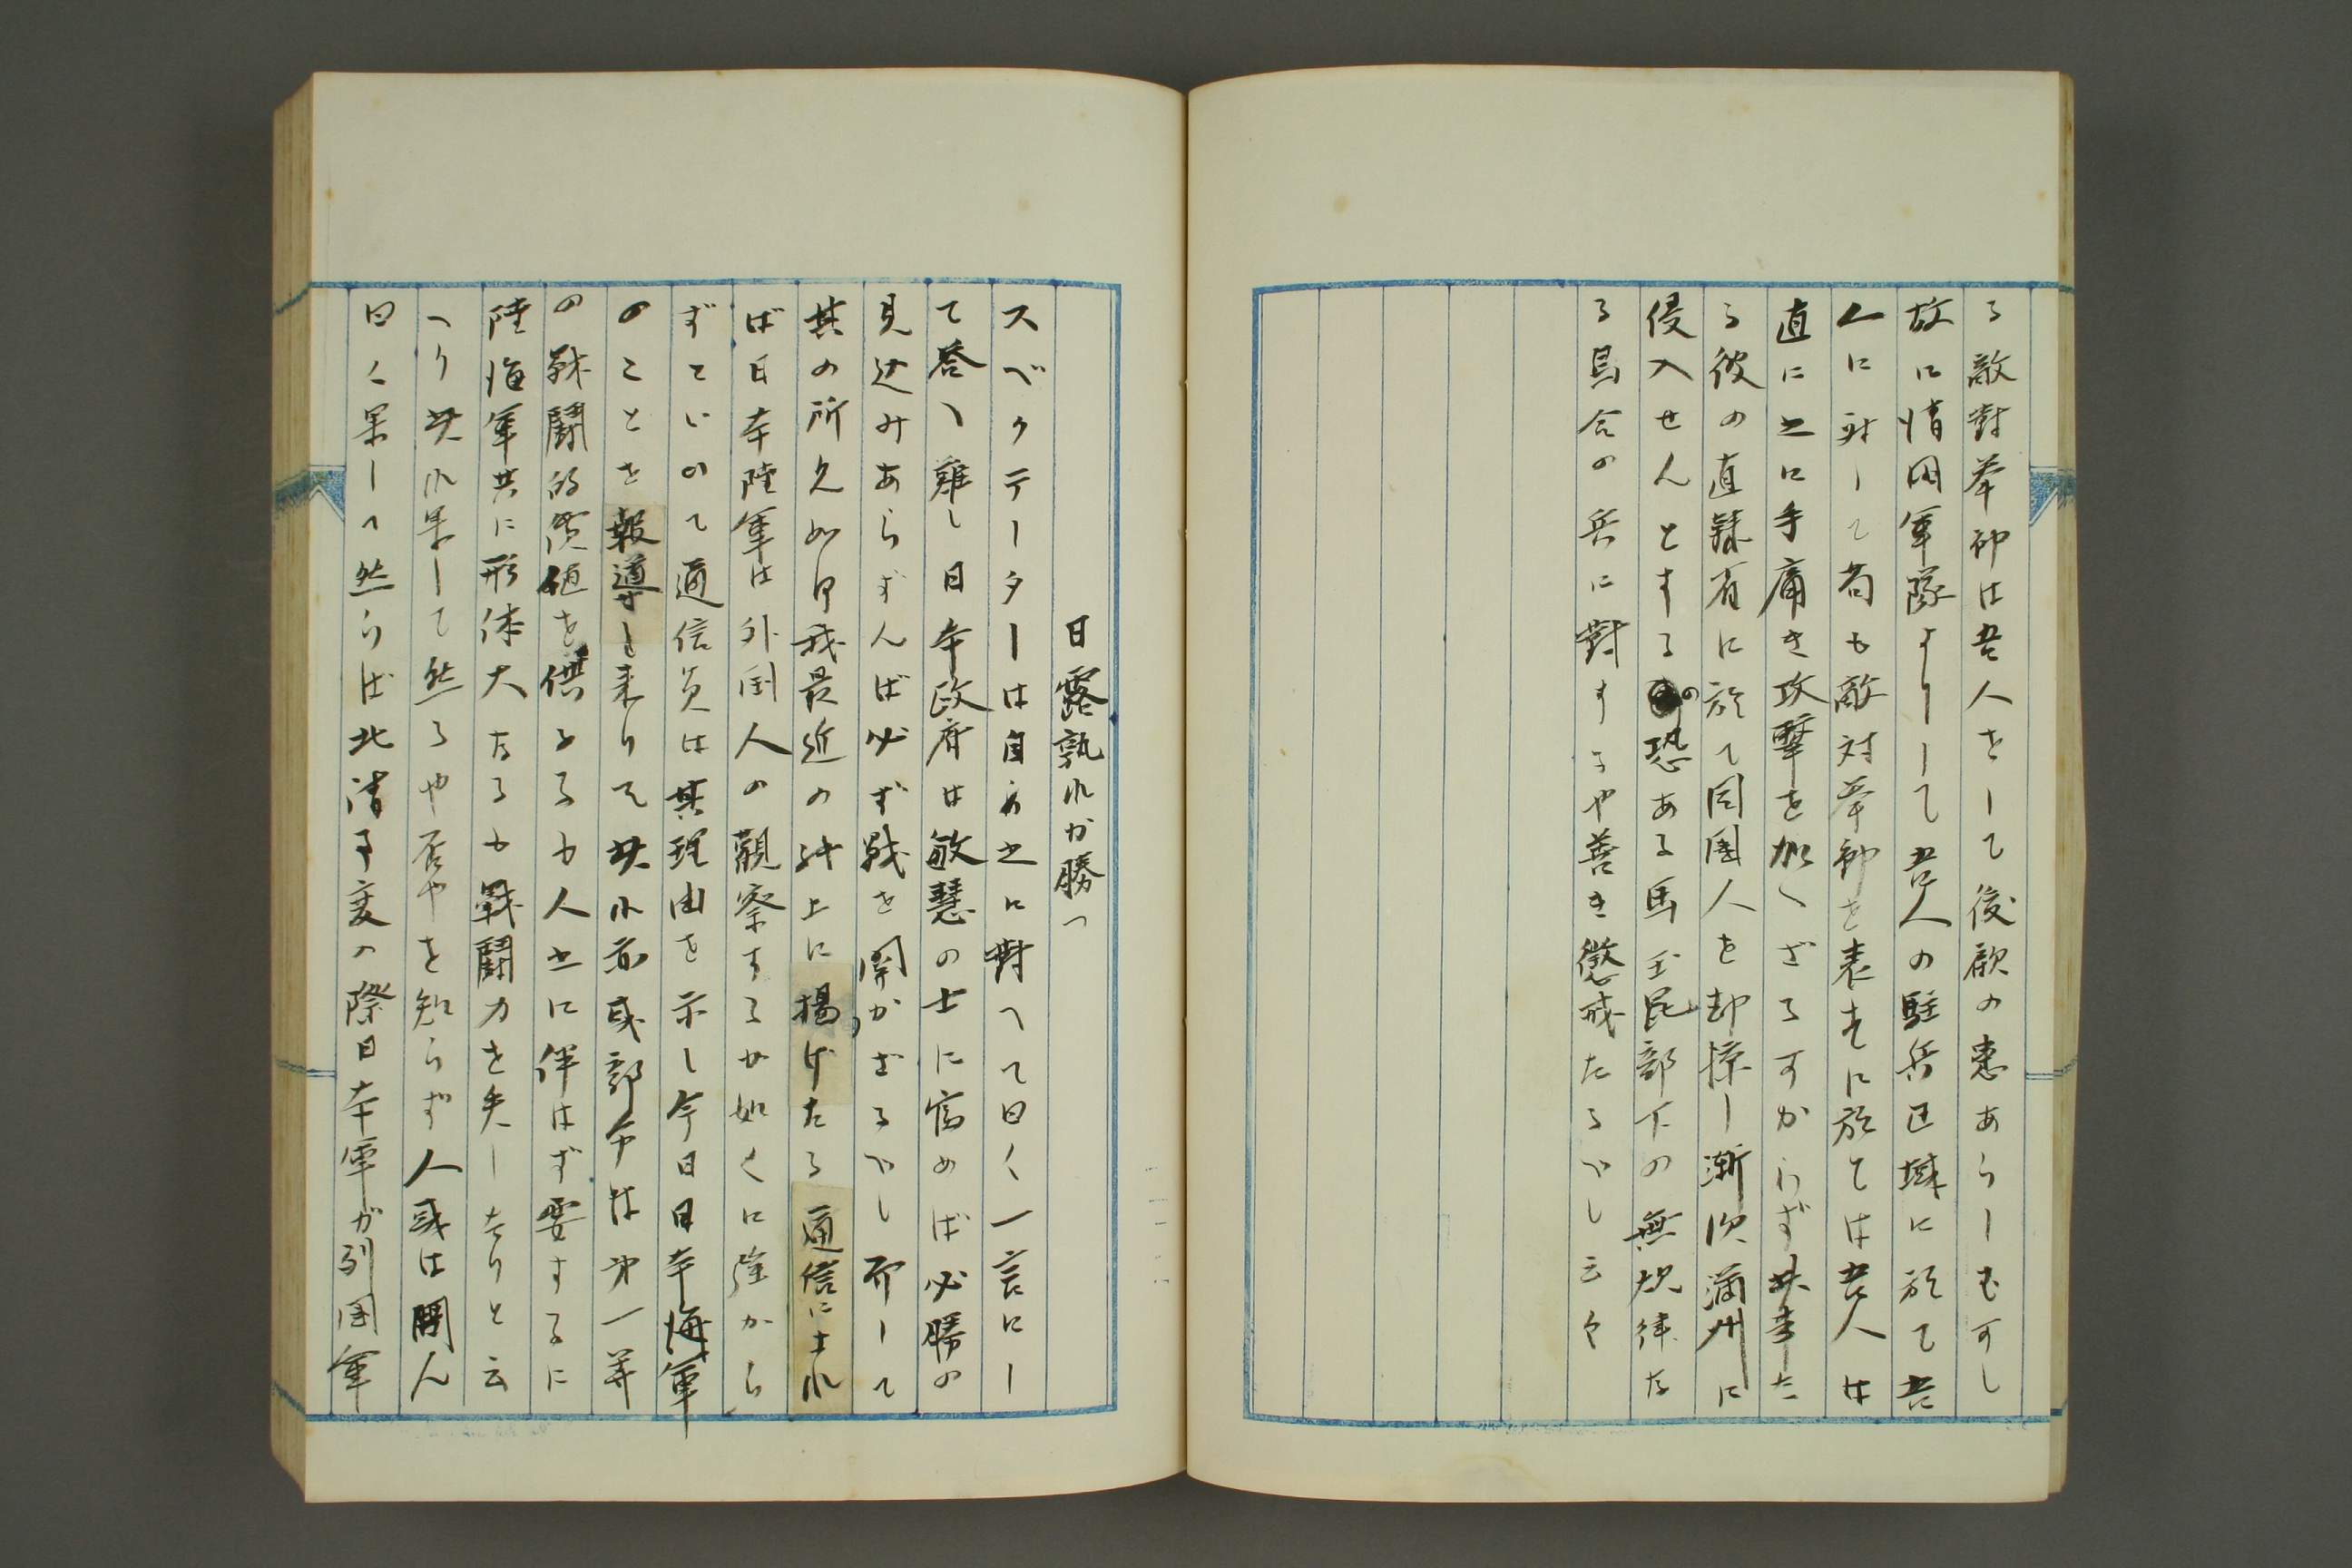 る敵對挙動は吾人をして後顧の患あらしむ可し
故に清国軍隊よりして吾人の駐兵区域に於て吾
人に対して苟も敵対挙動を表するに於ては吾人は
直に之に手痛き攻撃を加へざる可からず其業た
る彼の直隷省に於て同国人を却掠し漸次満州に
侵入せんとするの恐ある馬玉昆部下の無規律な
る烏合の兵に對する や善き懲戒たるべし云々
日露孰れか勝つ
スペクテーターは自ら之に對へて曰く一言にし
て答へ難し日本政府は敏慧の士に富めば必勝の
見込みあらずんば必ず戦を開かざるべし而して
其の所久如何我最近の紙上に掲げたる通信によれ
ば日本陸軍は外国人の觀察するが如くに強から
ず とて通信員は其理由を示し今日日本海軍
のことを報導し来りて其れ亦或部分は第一等
の戦闘的價値を供ふるも人之に伴はず要するに
陸海軍共に形体大なるも戰闘力を失したりと云
へり其れ果して然るや否やを知らず人或は開ん
曰く果して然らば北清事変の際日本軍が列国軍